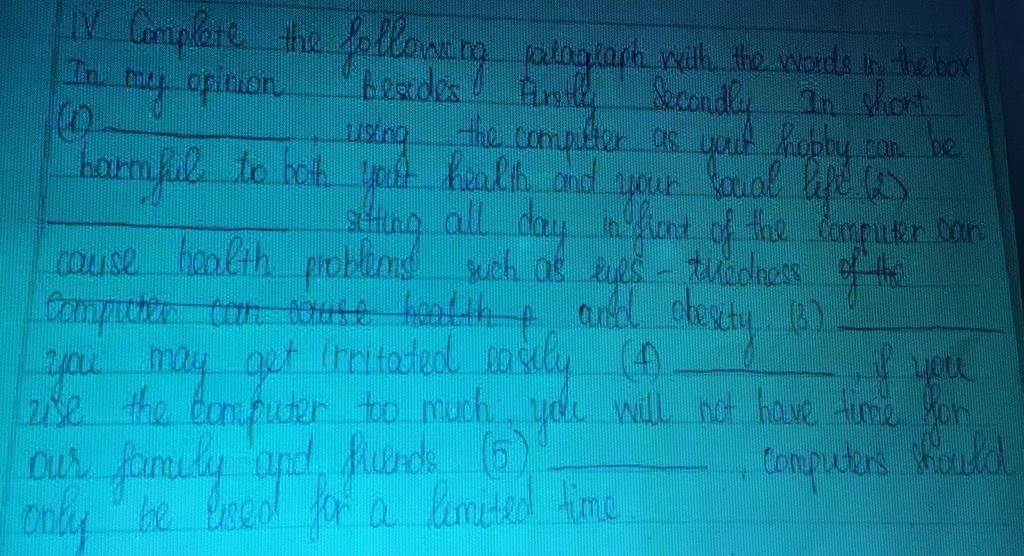 IV Complete the following paragraph with the words in the box
In my opinion besides Firstly Secondly In short
(1) ____________, using the computer as your hobby can be
harmful to both your health and your social life (2)
____________ sitting all day in front of the computer can
cause health problems such as eyes - tiredness of the
computer can cause health p and obesity. (3) ____________
you may get irritated easily (4) ____________, if you
use the computer too much, you will not have time for
our family and friends (5) ____________, computers should
only be used for a limited time.